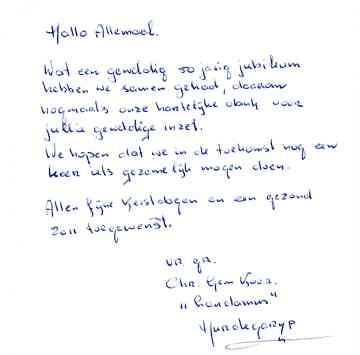 Hallo Allemaal.
Wat een geweldig 50 jarig jubileum
hebben we samen gehad, daarom
nogmaals onze hartelijke dank voor
jullie geweldige inzet.
We hopen dat we in de toekomst nog een
keer iets gezamelijk mogen doen.
Allen fijne Kerstdagen en een gezond
2011 toegewenst.
vr. gr.
Chr. Gem Koor.
"Laudamus"
Hurdegaryp